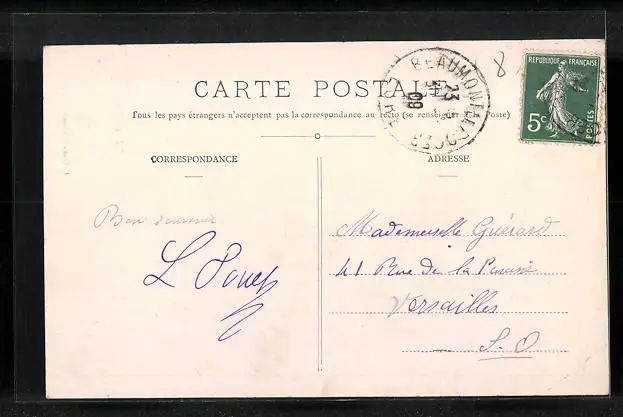 CARTE POSTALE
Tous les pays étrangers n'acceptent pas la correspondance au recto (se renseigner à la Poste)
CORRESPONDANCE
ADRESSE
BEAUMONT
23
08
8
REPUBLIQUE FRANÇAISE
5c
POSTES
Bon souvenir
L
Mademoiselle Guérard
41 Rue de la Paroisse
Versailles
S. O